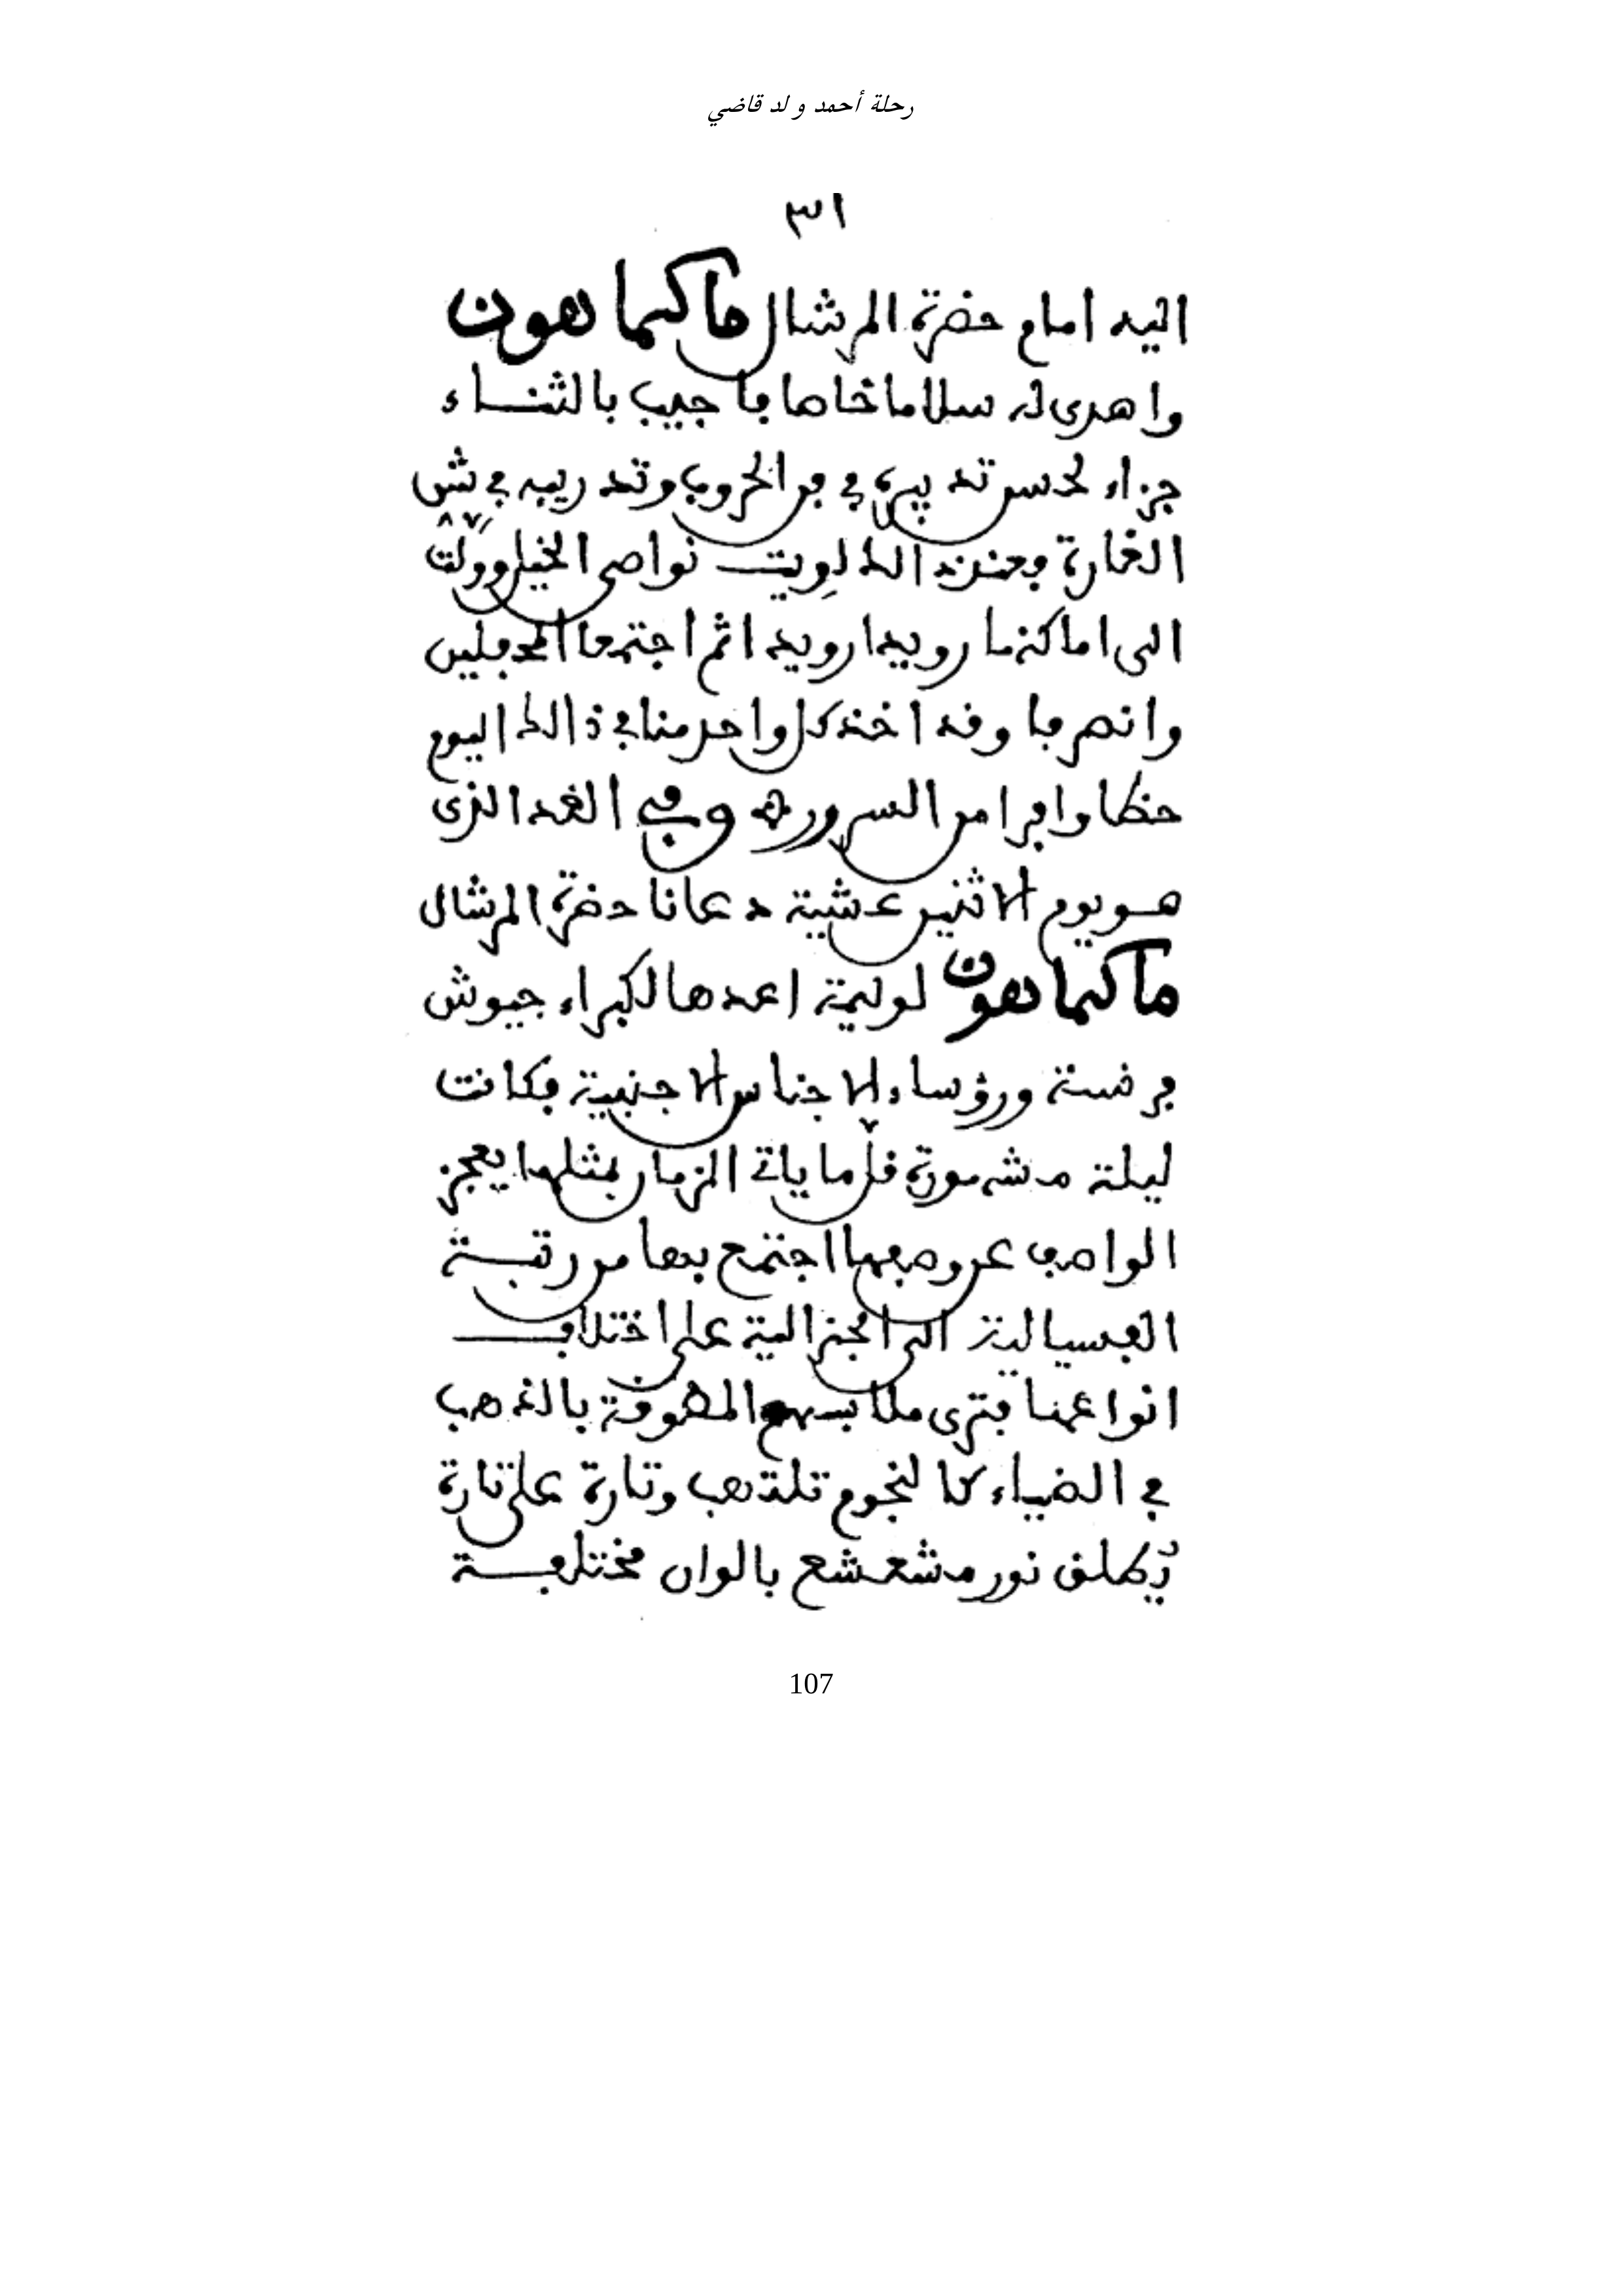 رحلة أحمد و لد قاضي
٣١
اليه امام حضرة المرشال ماكماهون
واهدى له سلاما خاصا فاجيب بالثناء
جزاء لحسن تدبيره في فن الحروب وتدريبه في شن
الغارة فعند ذالك لويت نواصى الخيل وولت
الى اماكنها رويدا رويدا ثم اجتمعا المحفلين
وانصرفا وقد اخذ كل واحد منا في ذالك اليوم
حظا وافرا من السرور ه وفي الغد الذى
هو يوم الاثنين عشية دعانا حضرة المرشال
ماكماهون لوليمة اعدها لكبراء جيوش
فرنسة ورؤساء الاجناس الاجنبية فكانت
ليلة مشهورة قل ما ياتي الزمان بمثلها يعجز
الواصف عن وصفها اجتمع بها من رتبة
الفسيالية الى الجنرالية على اختلاف
انواعها فترى ملابسهم المطروقة بالذهب
في الضياء كالنجوم تلتهب وتارة على تارة
يطلق نور مشعشع بالوان مختلفة
107